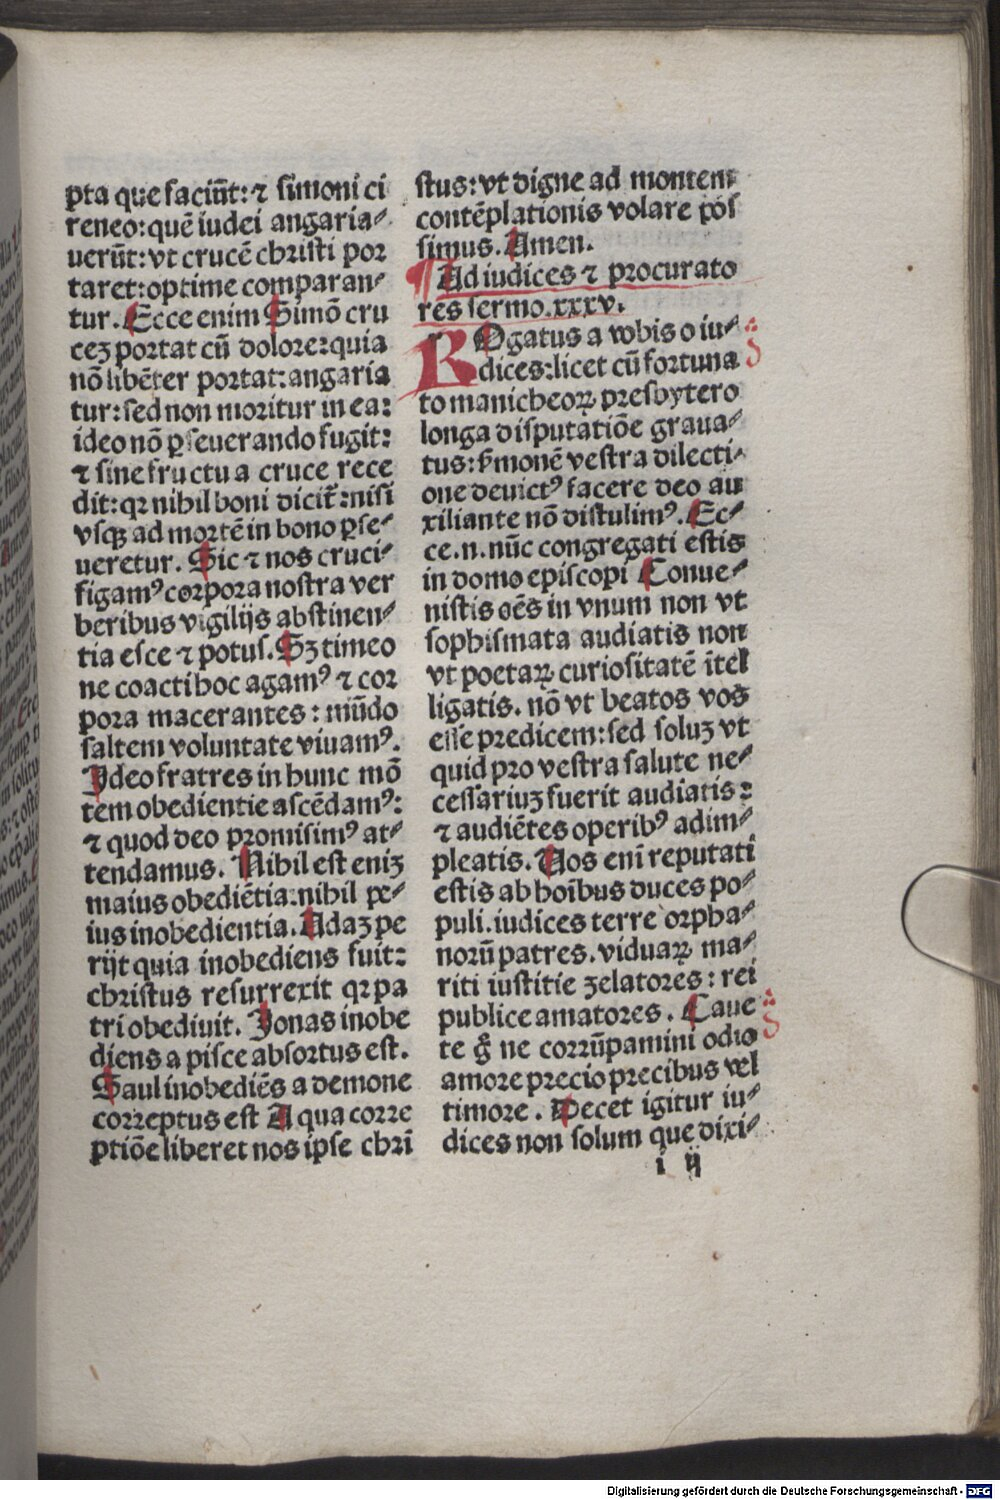 pta que faciūt: ⁊ simoni ci
reneo: quē iudei angaria-
uerūt: vt crucē christi por
taret: optime comparan-
tur. Ecce enim Simō cru
ceʒ portat cū dolore: quia
nō libēter portat: angaria
tur: sed non moritur in ea:
ideo nō ꝑseuerando fugit:
⁊ sine fructu a cruce rece
dit: qꝛ nihil boni dicit̄: nisi
vsqꝫ ad mortē in bono ꝑse-
ueretur. Sic ⁊ nos cruci-
figamꝰ corpora nostra ver
beribus vigilijs abstinen-
tia esce ⁊ potus. Sʒ timeo
ne coacti hoc agamꝰ ⁊ cor
pora macerantes: mūdo
saltem voluntate viuamꝰ.
Ideo fratres in hunc mō
tem obedientie ascēdamꝰ:
⁊ quod deo promisimꝰ at-
tendamus. Nihil est eniʒ
maius obediētia: nihil pe-
ius inobedientia. Adaʒ pe
rijt quia inobediens fuit:
christus resurrexit qꝛ pa
tri obediuit. Jonas inobe
diens a pisce absortus est.
Saul inobediēs a demone
correptus est A qua corre
ptiōe liberet nos ipse chri
stus: vt digne ad montem
contēplationis volare pos
simus. Amen.
¶ Ad iudices ⁊ procurato
res sermo. xxxv.
ROgatus a vobis o iu-
dices: licet cū fortuna
to manicheoꝝ presbytero
longa disputatiōe graua-
tus: s̄monē vestra dilecti-
one deuictꝰ facere deo au
xiliante nō distulimꝰ. Ec-
ce .n. nūc congregati estis
in domo episcopi Conue-
nistis oēs in vnum non vt
sophismata audiatis non
vt poetaꝝ curiositatē ītel
ligatis. nō vt beatos vos
esse predicem: sed soluʒ vt
quid pro vestra salute ne-
cessariuʒ fuerit audiatis:
⁊ audiētes operibꝰ adim-
pleatis. Uos eni reputati
estis ab hoībus duces po-
puli. iudices terre orpha-
norū patres. viduaꝝ ma-
riti iustitie zelatores: rei
publice amatores. Caue
te g̊ ne corrūpamini odio
amore precio precibus vel
timore. Decet igitur iu-
dices non solum que dixi-
i ij
Digitalisierung gefördert durch die Deutsche Forschungsgemeinschaft - DFG